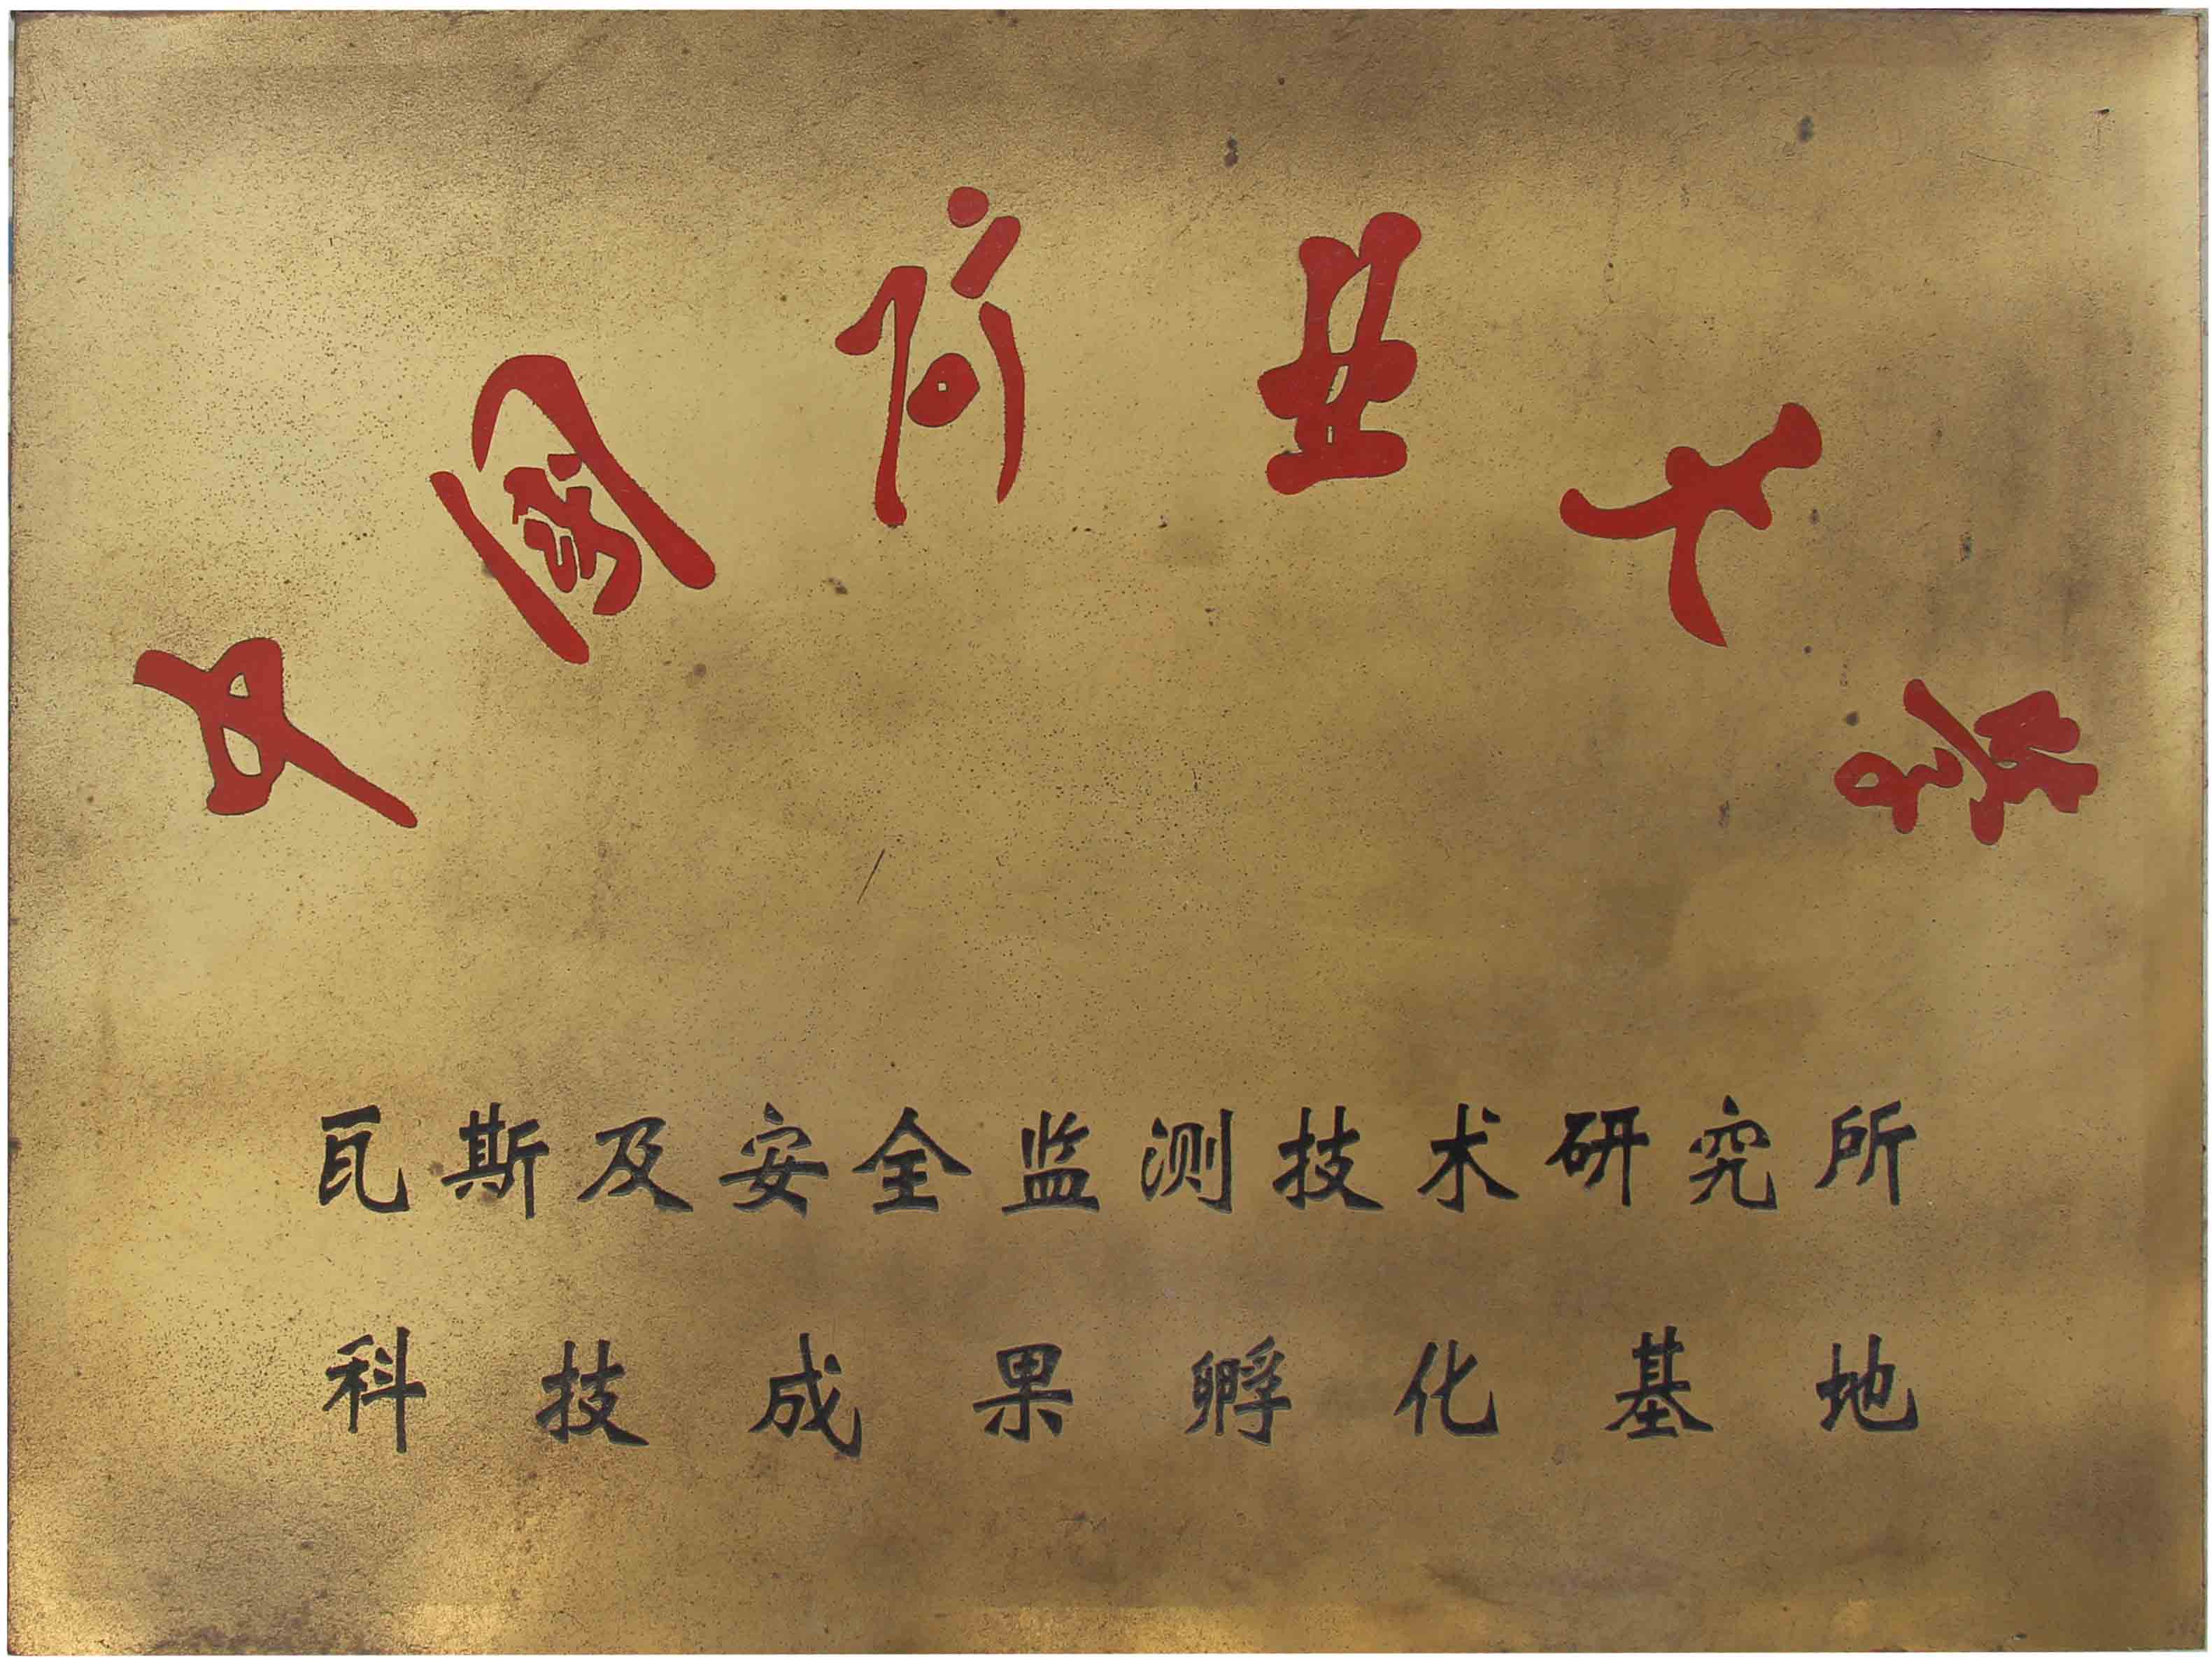 中国矿业大学
瓦斯及安全监测技术研究所
科技成果孵化基地